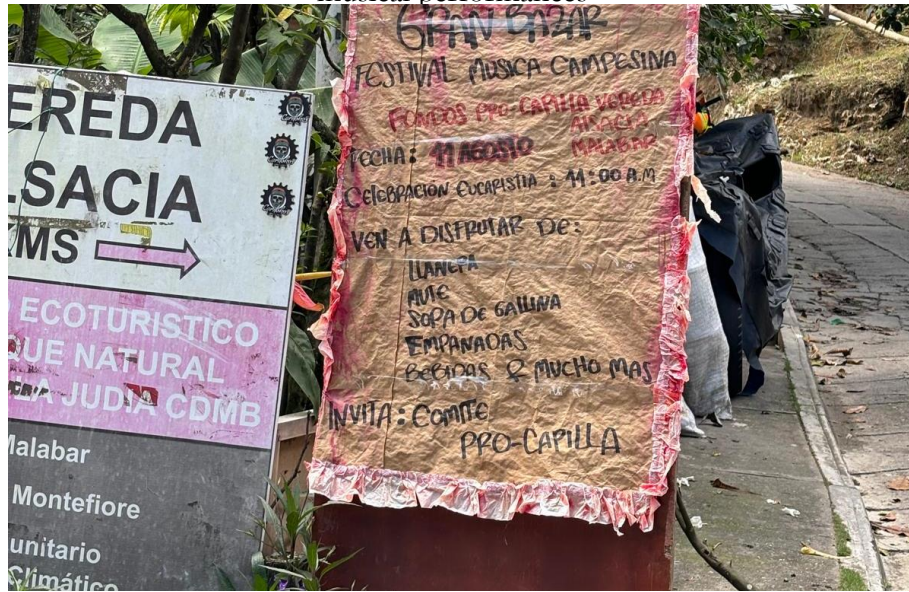 EREDA
LSACIA
KMS
ECOTURISTICO
QUE NATURAL
JUDIA CDMB
Malabar
Montefiore
unitario
Climático
GRAN BAZAR
FESTIVAL MUSICA CAMPESINA
FONDOS PRO-CAPILLA VEREDA
ALSACIA
MALABAR
FECHA: 11 AGOSTO
CELEBRACION EUCARISTIA : 11:00 A.M
VEN A DISFRUTAR DE:
LLANERA
MUTE
SOPA DE GALLINA
EMPANADAS
BEBIDAS & MUCHO MAS
INVITA: COMITE
PRO-CAPILLA